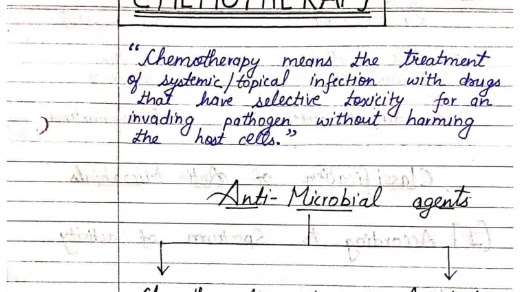 CHEMOTHERAPY
"Chemotherapy means the treatment
of systemic/topical infection with drugs
that have selective toxicity for an
invading pathogen without harming
the host cells."
Anti-Microbial agents